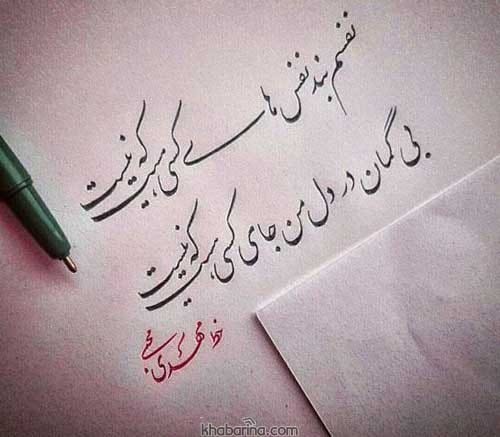 نفسم بند نفس های کسی هست که نیست
بی گمان در دل من جای کسی هست که نیست
مهدی
khabarina.com